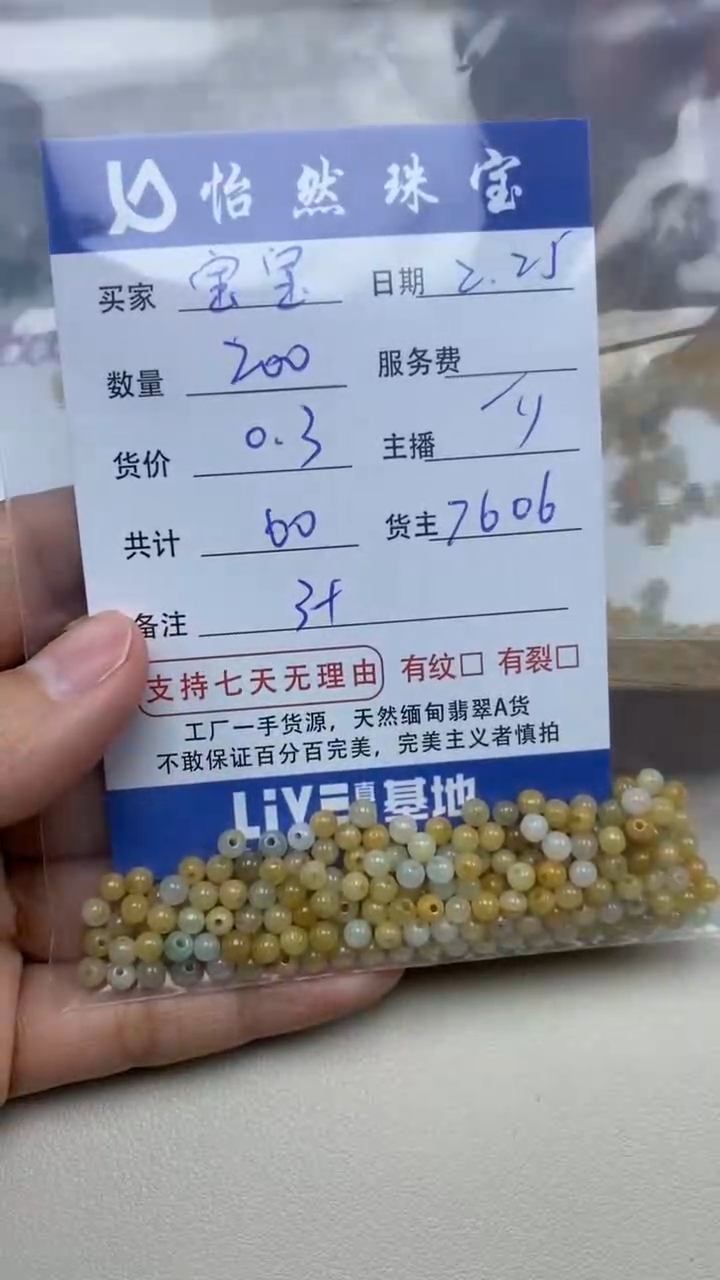 怡然珠宝
买家 宝宝 日期 2.25
数量 200 服务费
货价 0.3 主播
共计 60 货主 7606
备注 3+
支持七天无理由 有纹□ 有裂□
工厂一手货源，天然缅甸翡翠A货
不敢保证百分百完美，完美主义者慎拍
LiVE直 基地